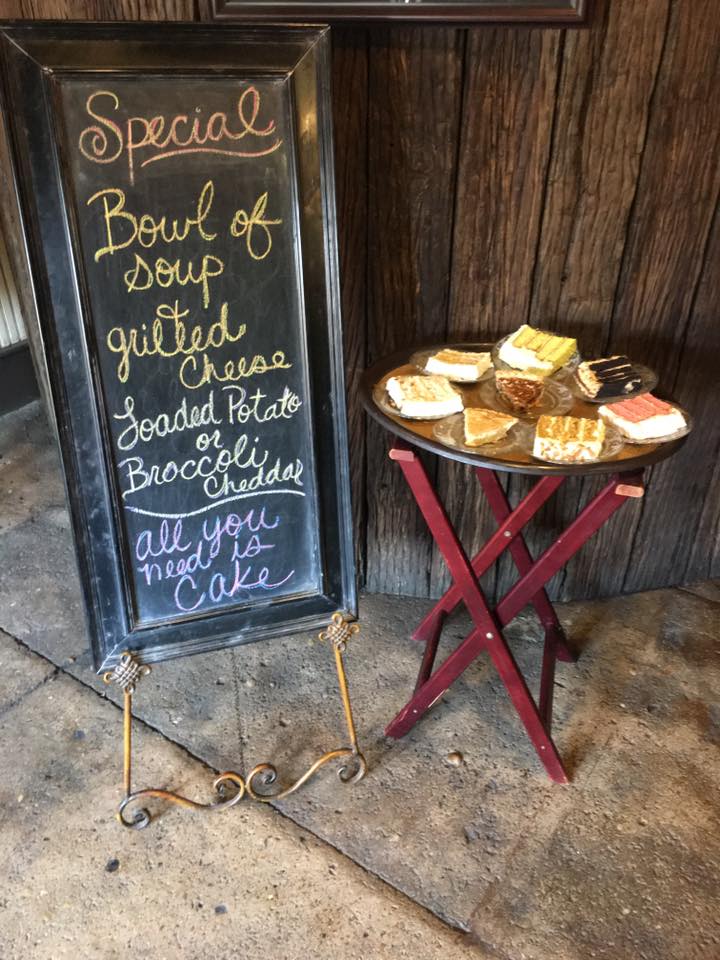 Special
Bowl of
soup
grilled
Cheese
Loaded Potato
or
Broccoli
Cheddar
all you
need is
Cake